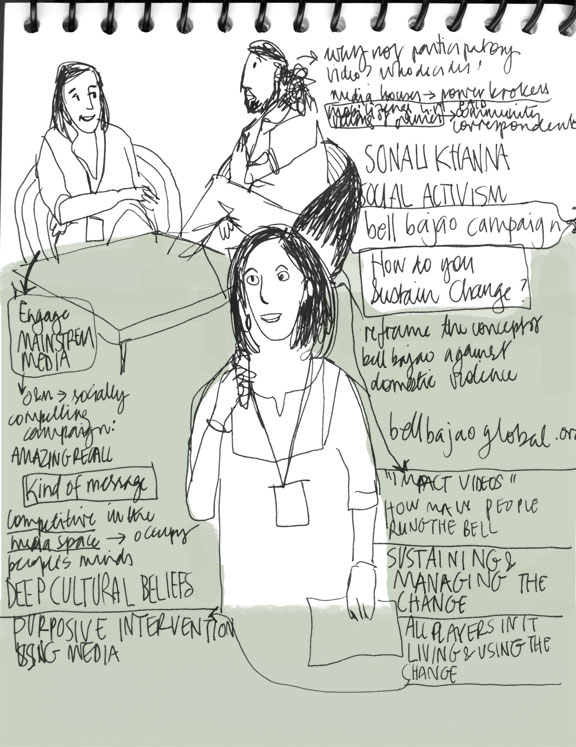 why not participatory
video? who decides?
media houses → power brokers
→ community
correspondent
SONALI KHANNA
SOCIAL ACTIVISM
bell bajao campaign
How do you
Sustain Change?
reframe the concept of
bell bajao against
domestic violence
bellbajaoglobal.org
"IMPACT VIDEOS"
HOW MANY PEOPLE
RUNG THE BELL
SUSTAINING &
MANAGING THE
CHANGE
ALL PLAYERS IN IT
LIVING & USING THE
CHANGE
Engage
MAINSTREM
MEDIA
→ socially
compelling
campaign:
AMAZING RECALL
Kind of message
competitive in the
media space → occupy
people's minds
DEEP CULTURAL BELIEFS
PURPOSIVE INTERVENTION
USING MEDIA